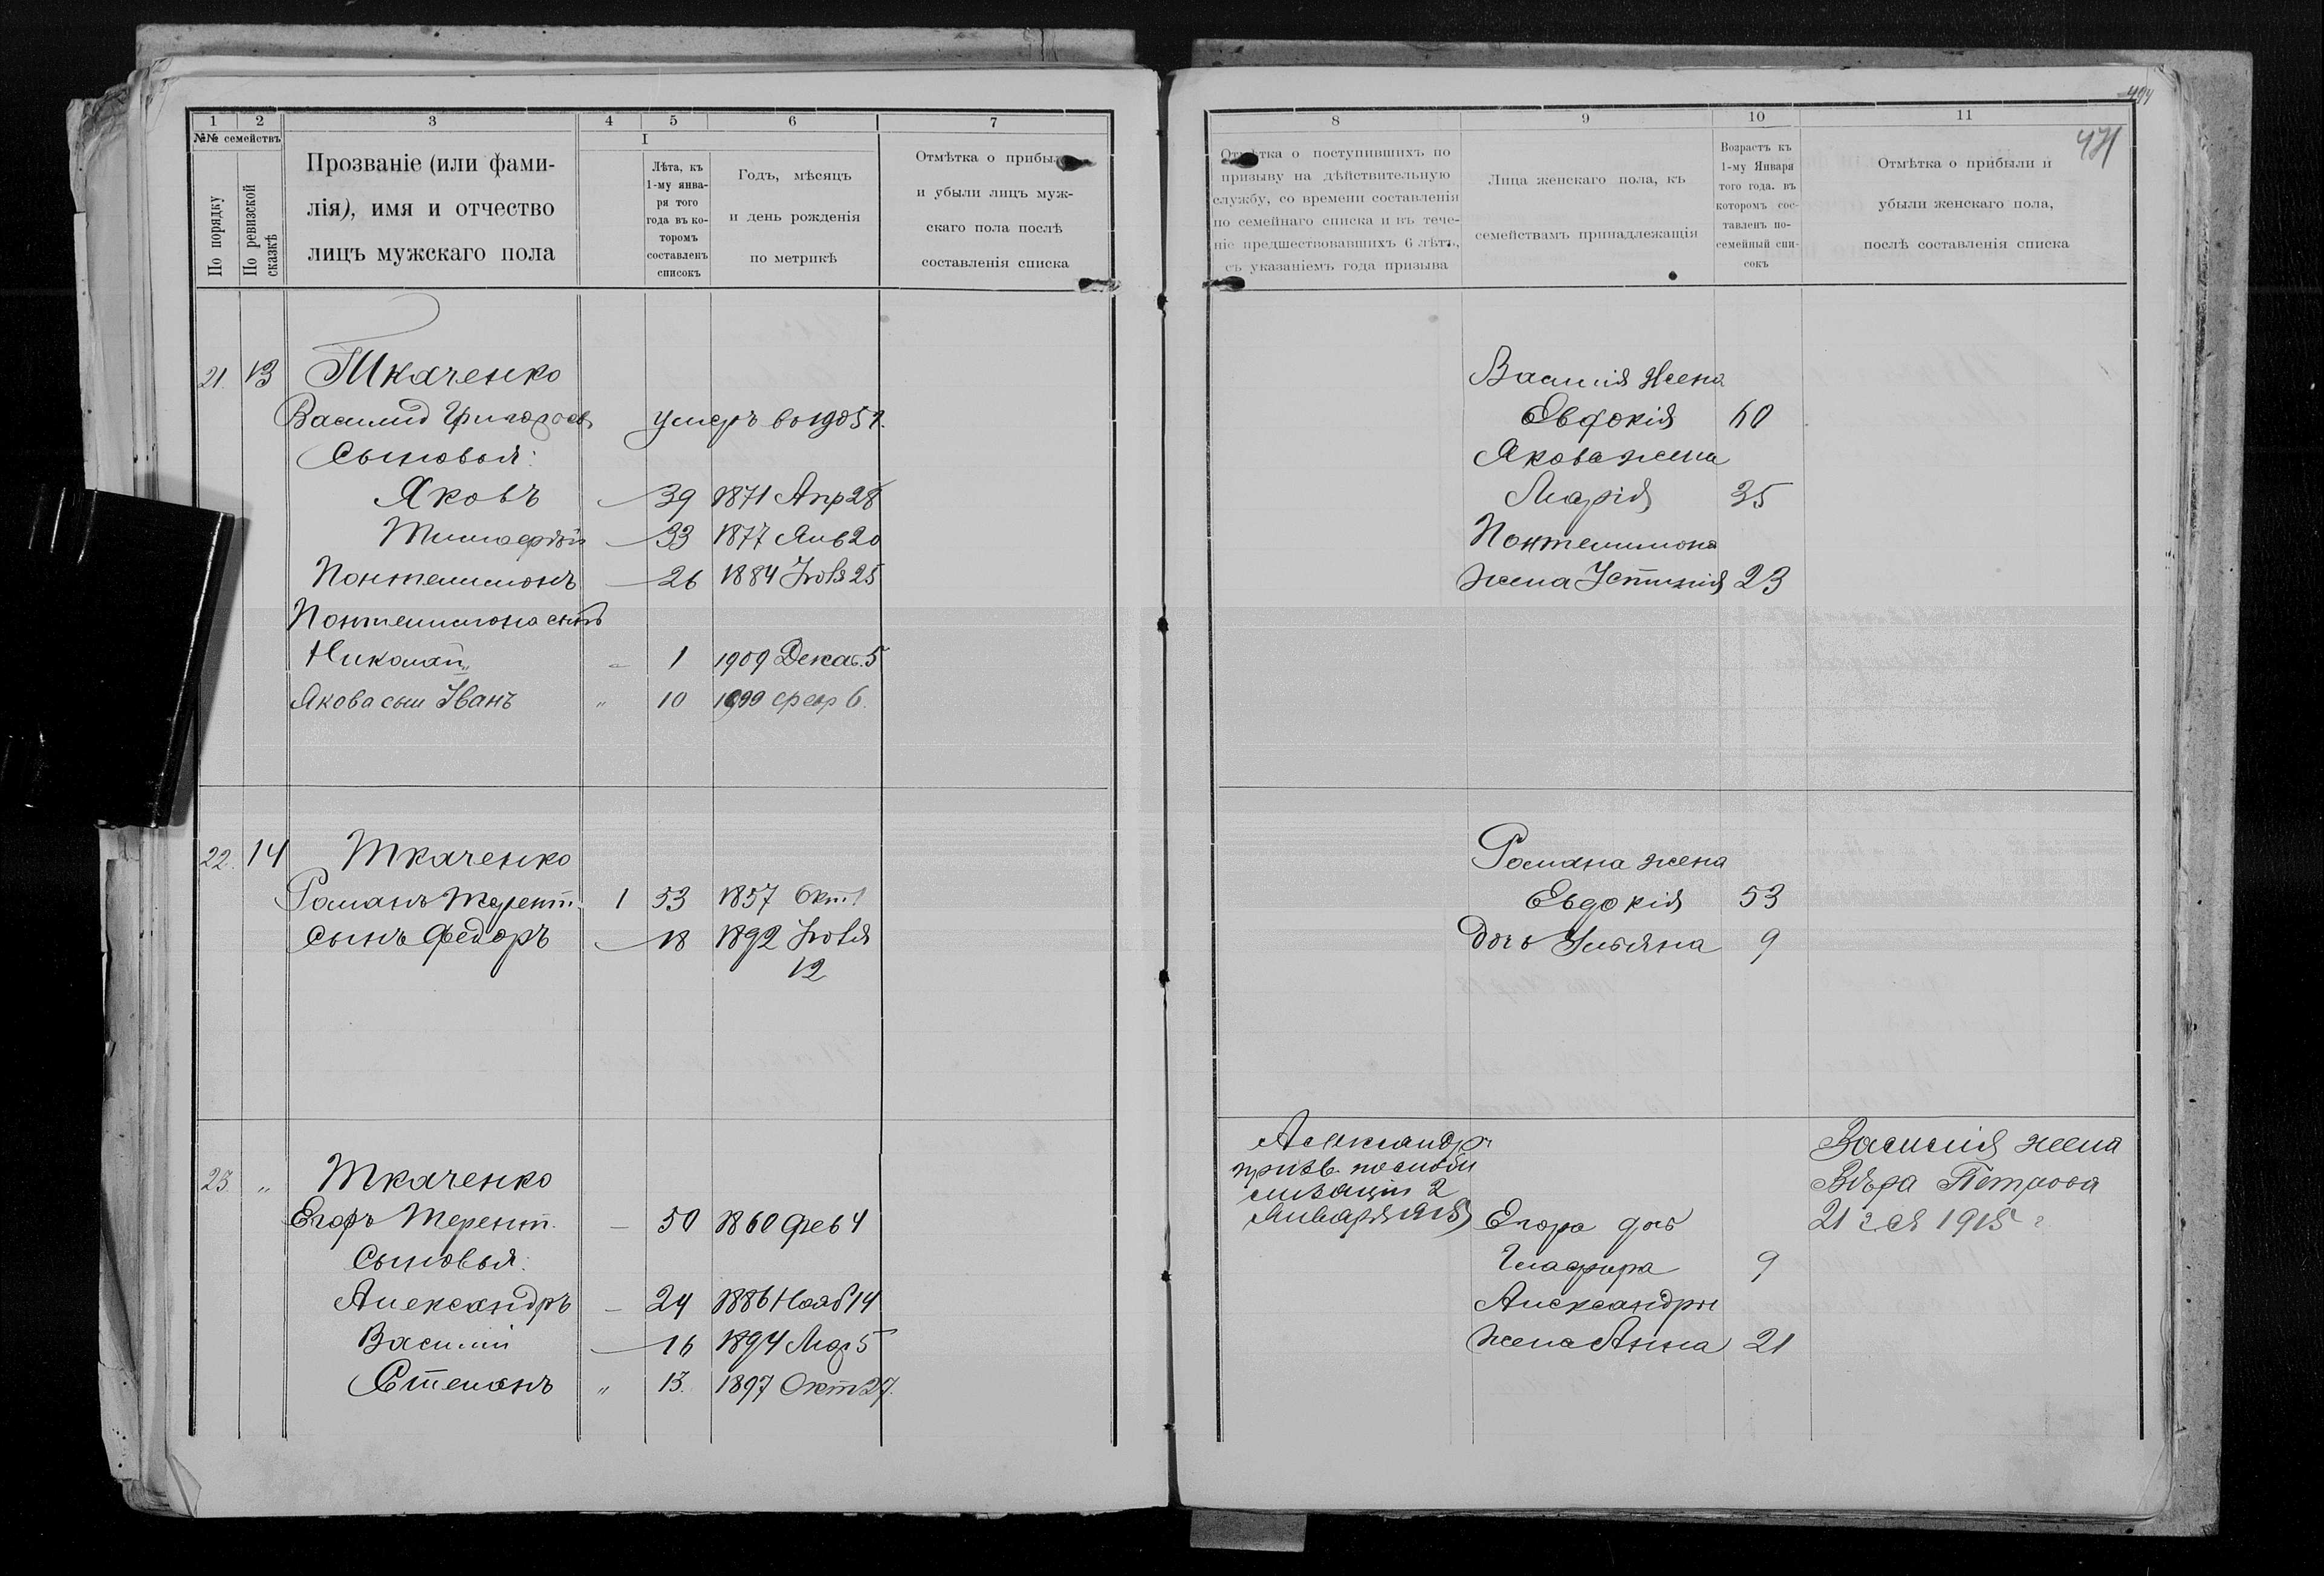 1 2 3 4 5 6 7
№№ семействъ
По порядку
По ревизской сказкѣ
Прозваніе (или фами-
лія), имя и отчество
лицъ мужскаго пола
I
Лѣта, къ
1-му янва-
ря того
года въ ко-
торомъ
составленъ
списокъ
Годъ, мѣсяцъ
и день рожденія
по метрикѣ
Отмѣтка о прибыли
и убыли лицъ муж-
скаго пола послѣ
составленія списка
21. 13 Ткаченко
Василий Григорьев умеръ въ 1905 г.
Сыновья:
Яковъ — 39 1871 Апр 28
Тимофей — 33 1877 Янв 20
Понтелимонъ — 26 1884 Іюля 25
Понтелимона сынъ
Николай — 1 1909 Декаб. 5
Якова сын Іванъ " 10 1899 февр 6.
22. 14 Ткаченко
Романъ Терент. 1 53 1857 Окт 1
Сынъ Федоръ — 18 1892 Іюля
12
23. " Ткаченко
Егоръ Терент. — 50 1860 фев 4
Сыновья:
Александръ — 24 1886 Нояб 14
Василий — 16 1894 Мар 5
Степанъ " 13. 1897 Окт 27.
494
471
8 9 10 11
Отмѣтка о поступившихъ по
призыву на дѣйствительную
службу, со времени составленія
по семейнаго списка и въ тече-
ніе предшествовавшихъ 6 лѣтъ,
съ указаніемъ года призыва
Лица женскаго пола, къ
семействамъ принадлежащія
Возрастъ къ
1-му Января
того года. въ
которомъ сос-
тавленъ по-
семейный спи-
сокъ
Отмѣтка о прибыли и
убыли женскаго пола,
послѣ составленія списка
Василія Жена
Евфокія 60
Якова жена
Марія 35
Понтелимона
жена Устинія 23
Романа жена
Евдокія 53
дочь Ульяна 9
Александръ
призв. по моби
лизаціи 2
Января 1915
Егора дочь
Глафира 9
Александры
жена Анна 21
Василія жена
Вѣра Петрова
21 1915 г